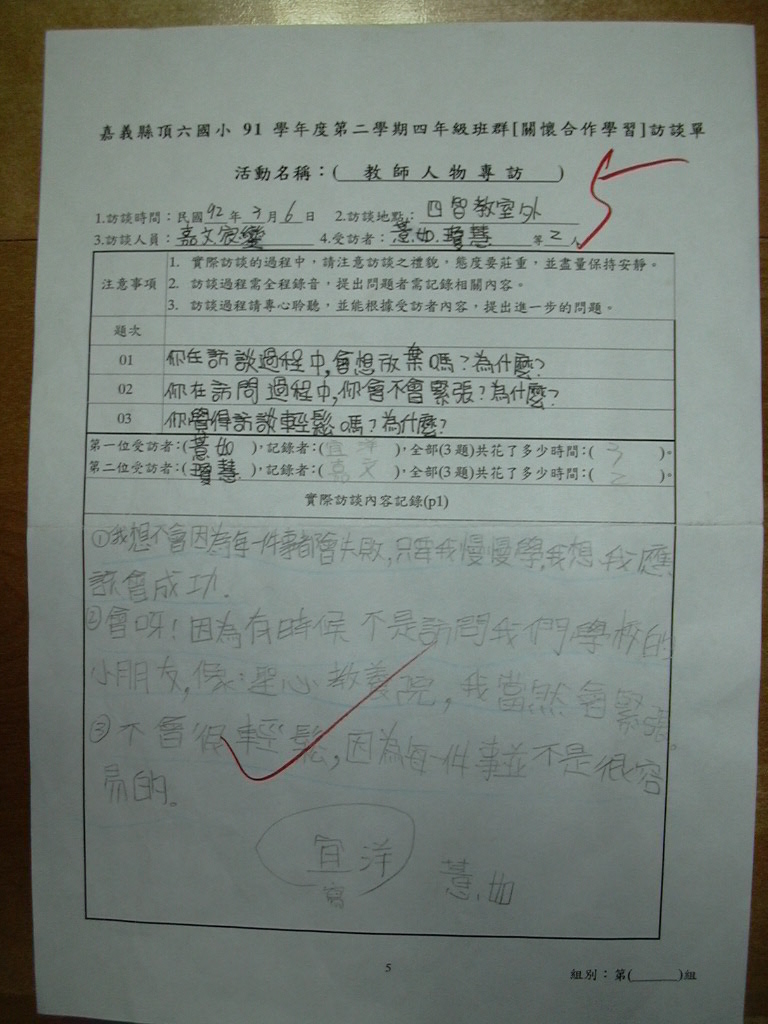 嘉義縣頂六國小 91 學年度第二學期四年級班群[關懷合作學習]訪談單
活動名稱：( 教師人物專訪 )
5
1.訪談時間：民國 92 年 3 月 6 日 2.訪談地點：四智教室外
3.訪談人員：嘉文宸瑩 4.受訪者：薏如.瓊慧 等 2 人
注意事項
1. 實際訪談的過程中，請注意訪談之禮貌，態度要莊重，並盡量保持安靜。
2. 訪談過程需全程錄音，提出問題者需記錄相關內容。
3. 訪談過程請專心聆聽，並能根據受訪者內容，提出進一步的問題。
題次
01 你在訪談過程中,會想放棄嗎?為什麼?
02 你在訪問過程中,你會不會緊張?為什麼?
03 你覺得訪談輕鬆嗎?為什麼?
第一位受訪者：(薏如 )，記錄者：(宜洋 )，全部(3 題)共花了多少時間：( 3 )。
第二位受訪者：(瓊慧 )，記錄者：(嘉文 )，全部(3 題)共花了多少時間：( 2 )。
實際訪談內容記錄(p1)
①我想不會因為每一件事都會失敗,只要我慢慢學,我想我應
該會成功.
②會呀!因為有時候不是訪問我們學校的
小朋友,像:聖心教養院,我當然會緊張。
③不會很輕鬆,因為每一件事並不是很容
易的。
宜洋
寫
薏如
5
組別：第( )組